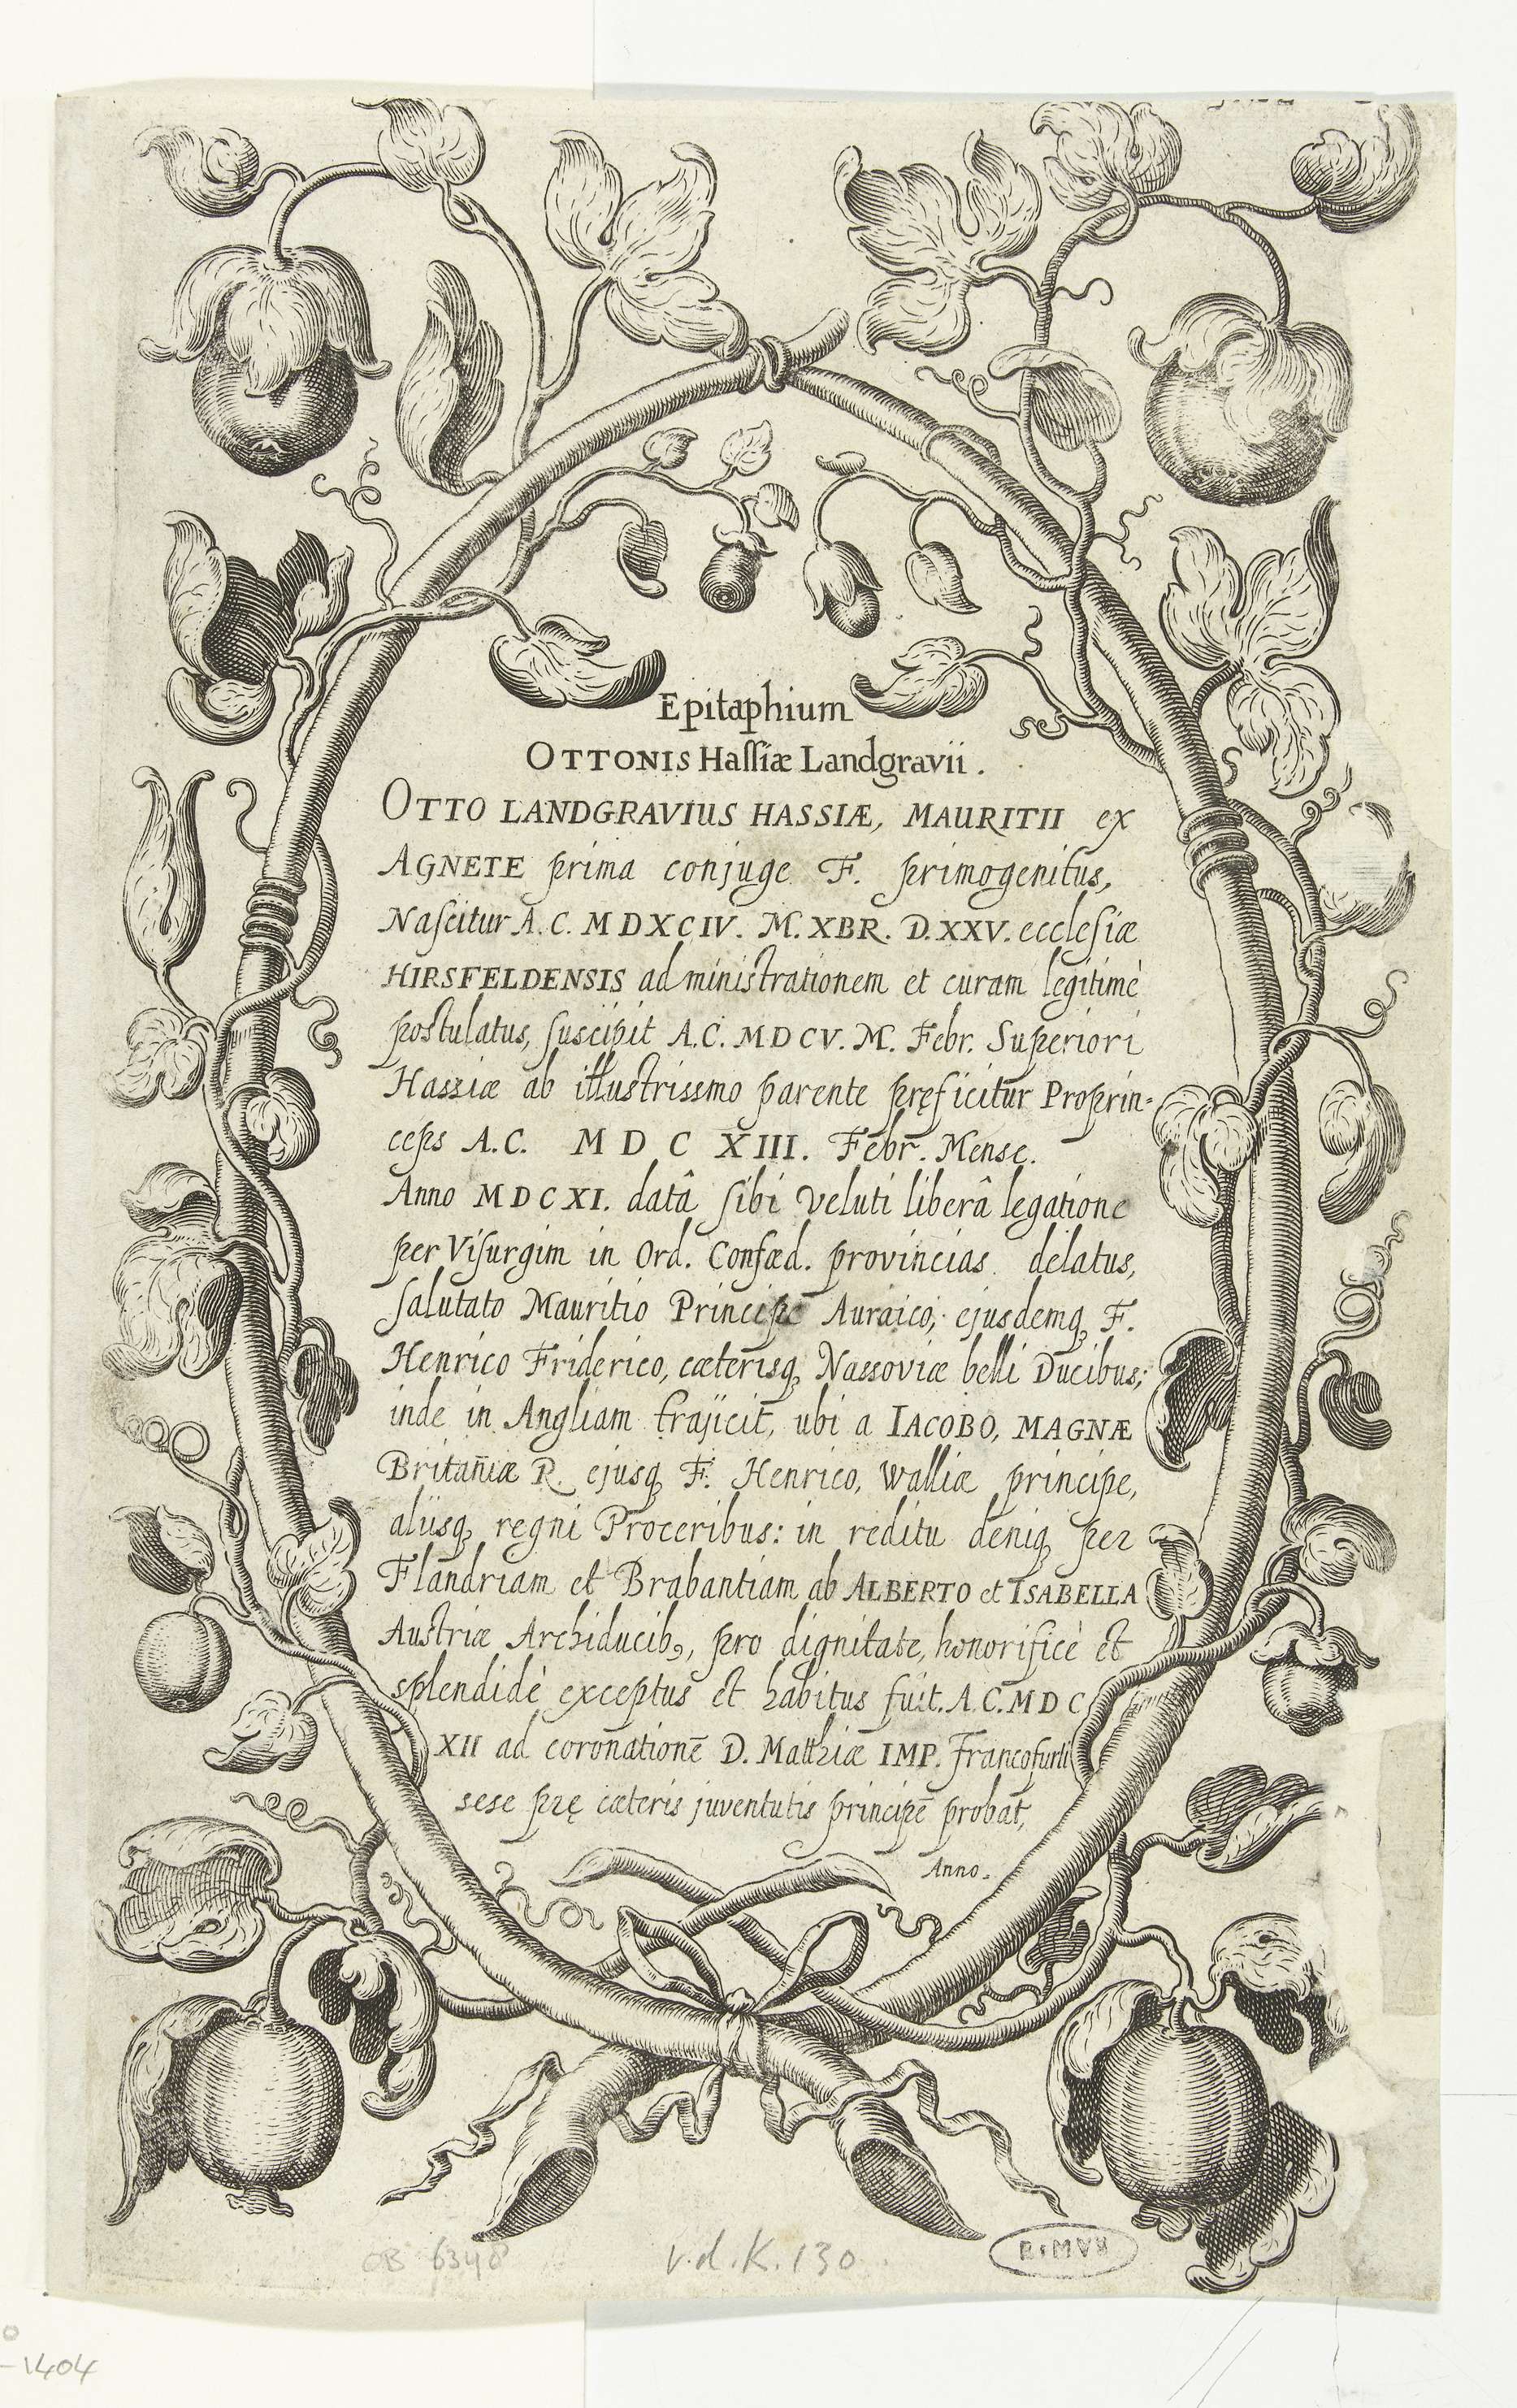 Epitaphium
OTTONIS Haſſiæ Landgravii.
OTTO LANDGRAVIUS HASSIÆ, MAURITII ex
AGNETE prima conjuge F. primogenitus,
Naſcitur A.C. MDXCIV. M. XBR. D.XXV. eccleſiæ
HIRSFELDENSIS administrationem et curam legitimè
postulatus, ſuscipit A.C. MDCV. M. Febr. Superiori
Hassiæ ab illustrissmo parente pręficitur Proprin-
ceps A.C. MDCXIII. Febr. Mense.
Anno MDCXI. datâ ſibi veluti liberâ legatione
per Viſurgim in Ord. Confœd. provincias delatus,
ſalutato Mauritio Principe Auraico, ejusdemq, F.
Henrico Friderico, cæterisq, Nassoviæ belli Ducibus;
inde in Angliam trajicit, ubi a IACOBO, MAGNÆ
Britan̄iæ R. ejusq, F. Henrico, Walliæ principe,
aliisq, regni Proceribus: in reditu deniq, per
Flandriam et Brabantiam ab ALBERTO et ISABELLA
Austriæ Archiducib9, pro dignitate, honorificè et
splendidè exceptus et habitus fuit. A.C. MDC
XII ad coronationē D. Matthiæ IMP. Francofurti
sese prę cæteris juventutis principē probat,
Anno.
OB 6348
v.d.K. 130
R·MVH
-1404